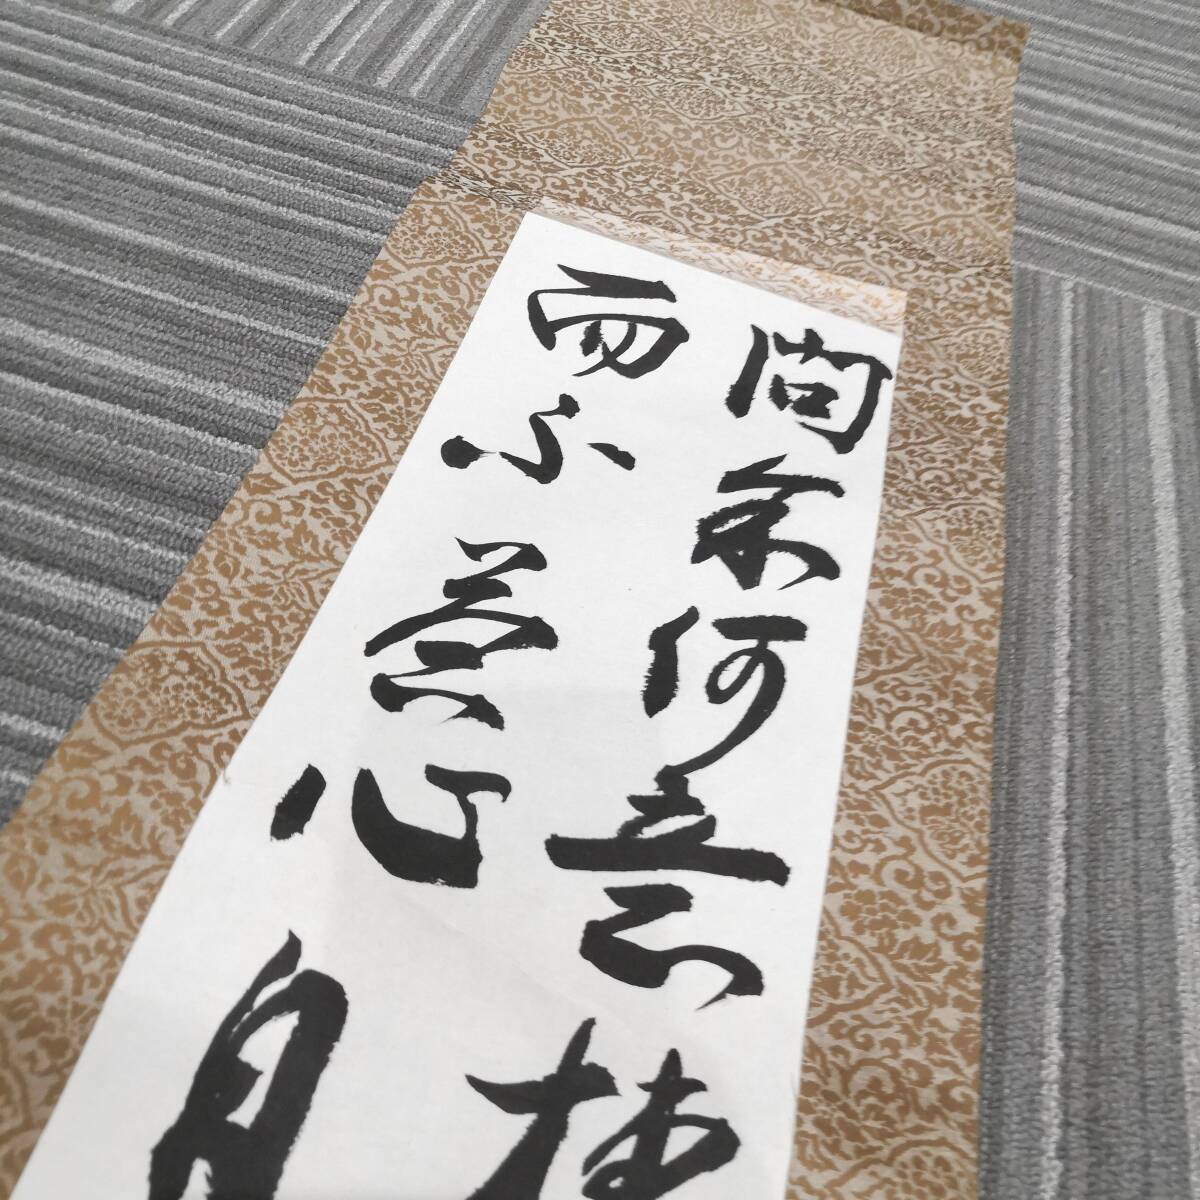 問余何意栖
而不答心自